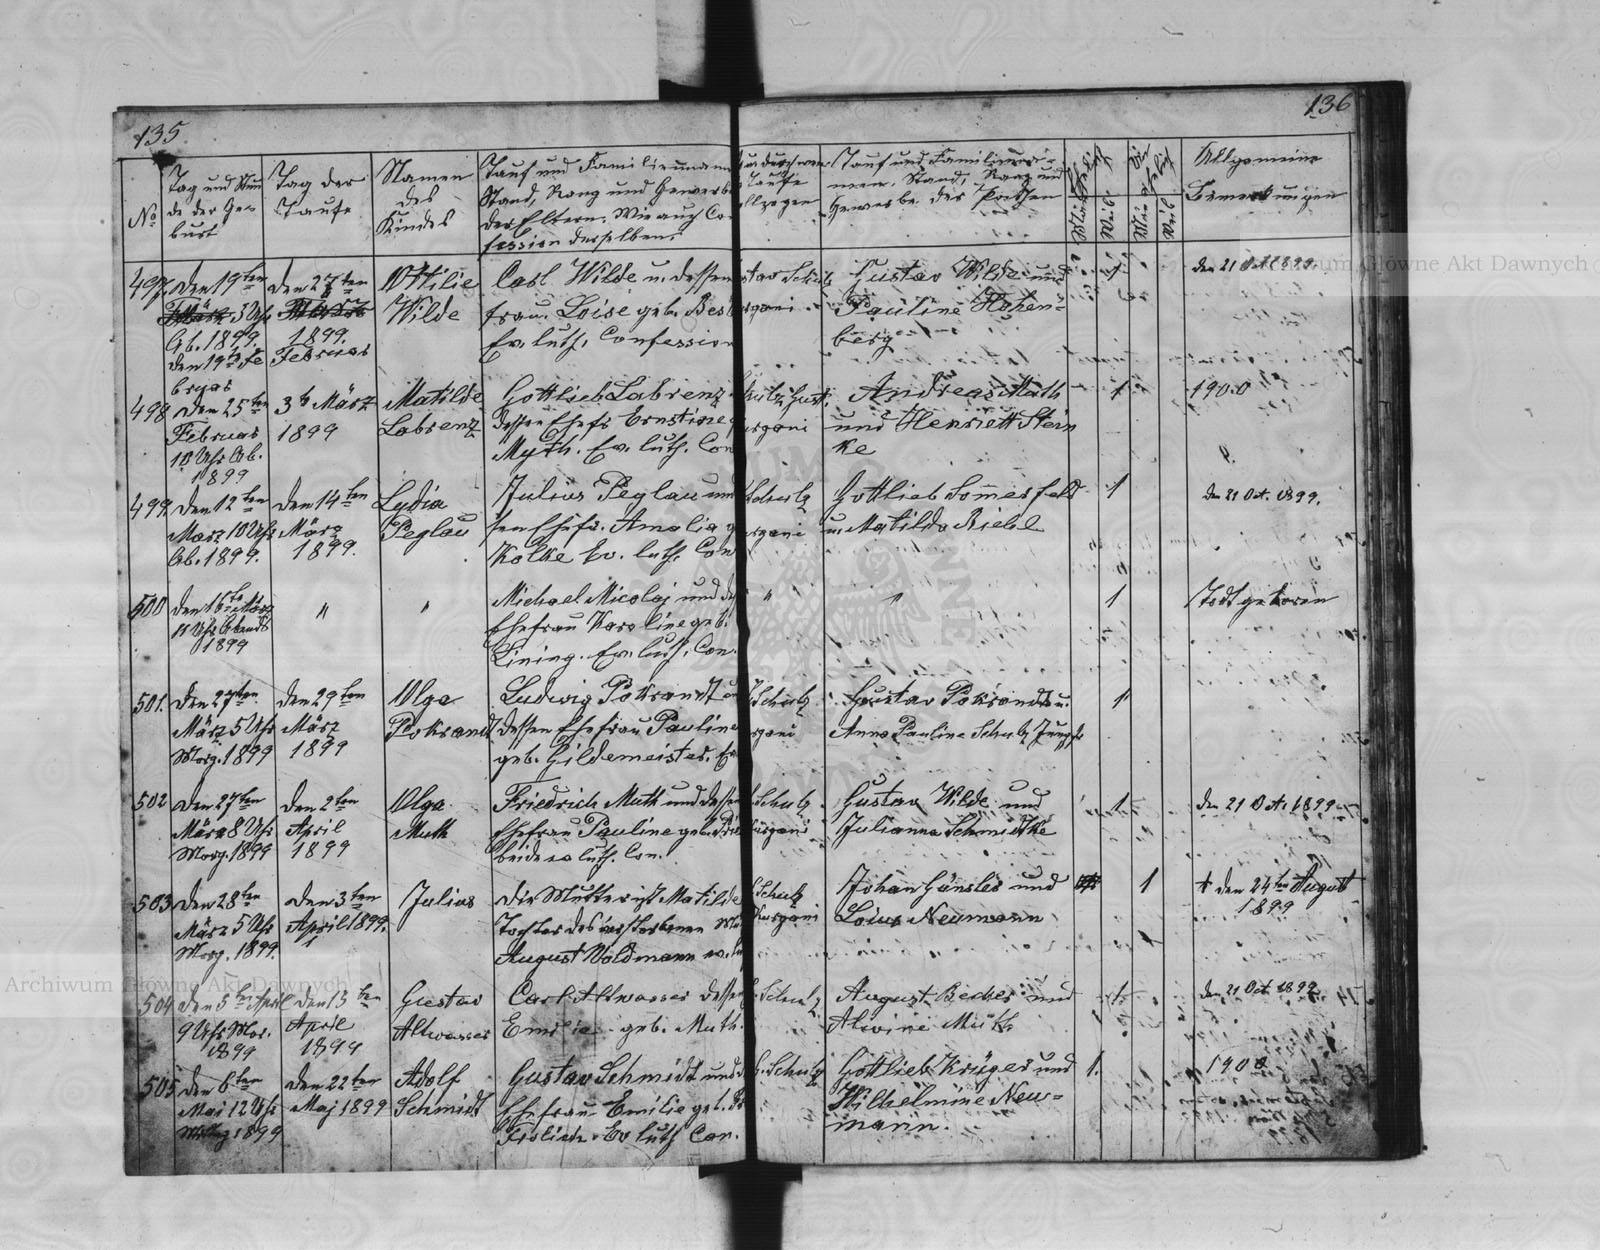 135
136
No
Tag und Stun
de der Ge=
burt
Tag der
Taufe
Namen
des
Kindes
Tauf und Familiennam
Stand, Rang und Gewerbe
der Eltern. Wie auch Con
fession derselben.
Taufe
Tauf und Familienna=
men. Stand, Rang und
Gewerbe der Pathen
Allgemeine
Bemerkungen
497. Den 19ten
3 Uhr
Ab. 1899.
den 19ten Fe
bruar
den 27ten
1899.
Februar
Ottilie
Wilde
Carl Wilde u. dessen
frau. Loise geb. Bes
Ev. luth. Confession
Gustav Wilde und
Pauline Hohen=
berg
1
den 21 Oct 1899.
498
Den 25ten
Februar
10 Uhr Ab.
1899
3ten März
1899
Matilde
Labrenz
Gottlieb Labrenz
dessen Ehefr Ernstine
Myth. Ev. luth. Con
Andreas Muth
und Henriett Stein
ke
1
1900
499.
Den 12ten
März 10 Uhr
Ab. 1899.
den 14ten
März
1899.
Lydia
Peglau
Julius Peglau und
sen Ehefr. Amalia g
Kolke Ev. luth. Con
Schulz
Gottlieb Sommerfeld
u. Matilda Riebel
1
den 21 Oct. 1899.
500
den 16ten März
11 Uhr Abends
1899
"
"
Michael Micolaj und des
Ehefrau Karoline geb.
Lining. Ev. luth. Con.
"
"
1
Todt geboren
501.
Den 27ten
März 5 Uhr
Morg. 1899
den 29ten
März
1899
Olga
Pokrandt
Ludwig Pokrandt u
dessen Ehefrau Pauline
geb. Gildemeister. Ev
Schulz
Gustav Pokrandt u.
Anna Pauline Schulz Jungfr
1
502
den 27ten
März 8 Uhr
Morg. 1899
den 2ten
April
1899
Olga
Muth
Friedrich Muth und dessen
Ehefrau Pauline geb.
beide ev luth. Con.
Schulz
Gustav Wilde und
Julianna Schmidtke
1
den 21 Oct. 1899
503
den 28ten
März 5 Uhr
Morg. 1899.
den 3ten
April 1899.
Julius
die Mutter ist Matilde
Tochter des verstorbenen
August Woldmann ev.
Schulz
Kurgani
Johan Gänsler und
Loius Neumann
1
† den 24ten August
1899
504
den 5ten April
9 Uhr Mor.
1899
den 13ten
April
1899
Gustav
Altwasser
Carl Altwasser dessen
Emilie geb. Muth.
Schulz
August Becher und
Alwine Muth
1
den 21 Oct 1899
505
den 6ten
Mai 12 Uhr
Mittag 1899
den 22ten
Maj 1899
Adolf
Schmidt
Gustav Schmidt und
Ehefrau Emilie geb.
Frölich. Ev luth Con.
G. Schulz
Gottlieb Krüger und
Wilhelmine Neu=
mann.
1.
1900
Archiwum Główne Akt Dawnych
Archiwum Główne Akt Dawnych